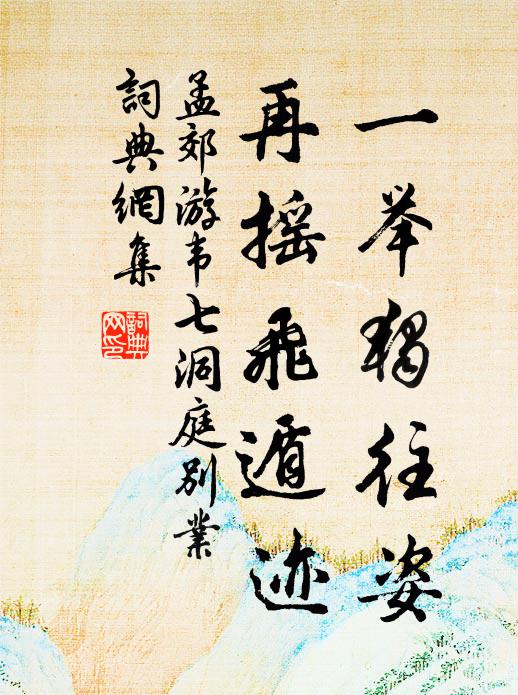 一举獨往姿
再摇飛遁迹
孟郊游韦七洞庭别業
詞典網集
詞典
网印